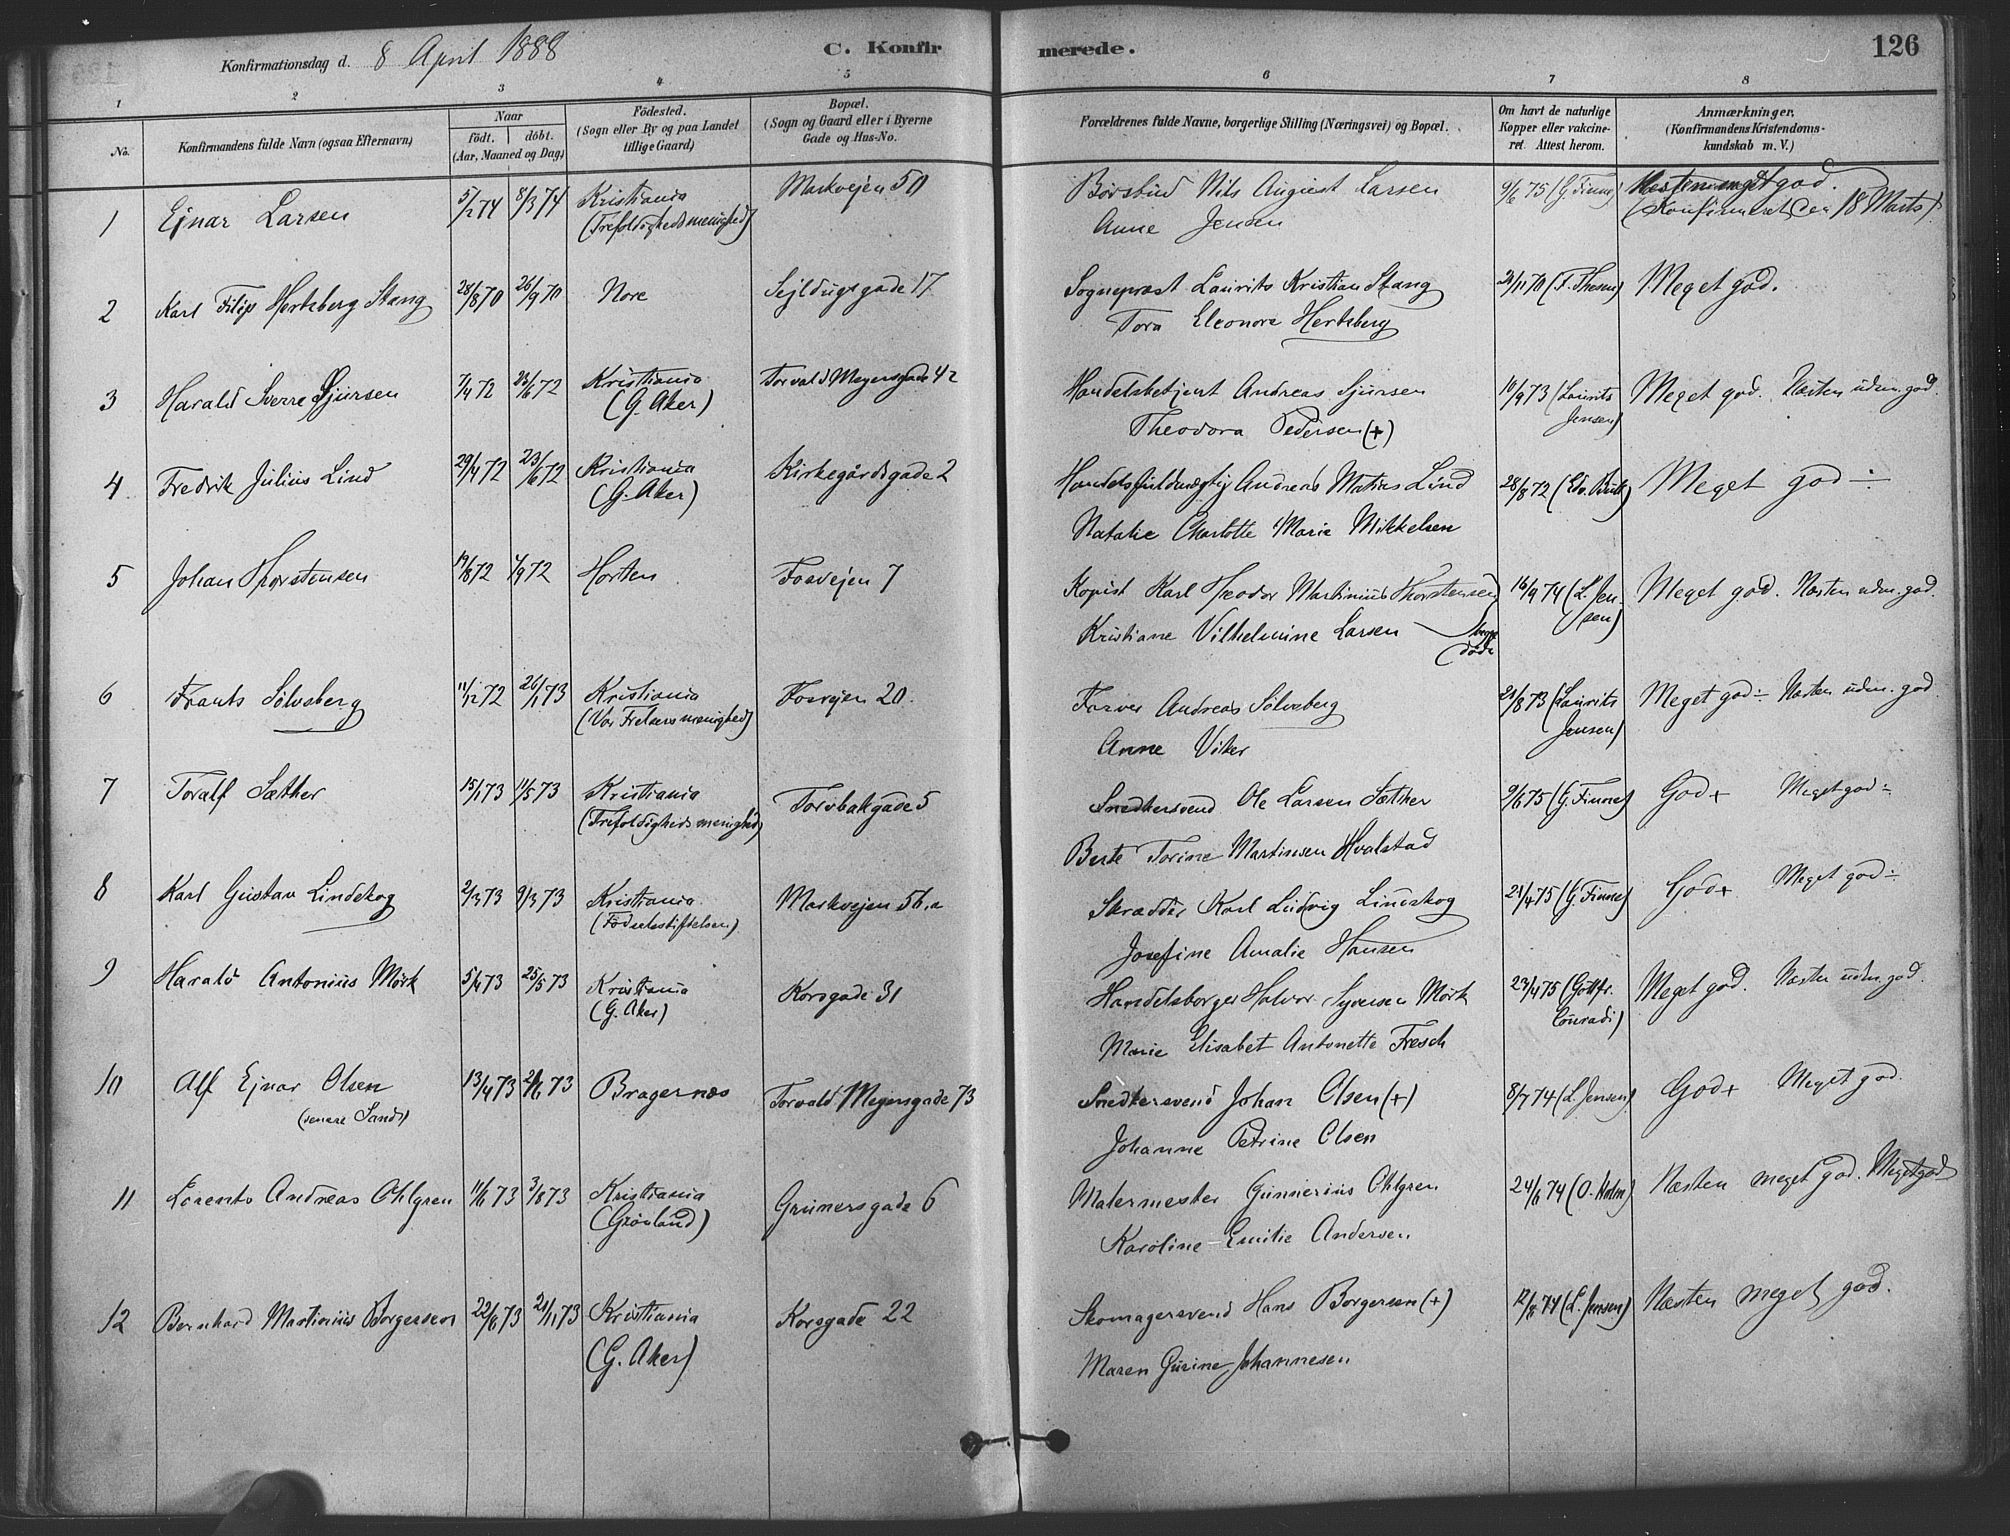 Konfirmationsdag d. 8 April 1888
C. Konfirmerede.
126
1 2 3 4 5 6 7 8
No.
Konfirmandens fulde Navn (ogsaa Efternavn)
Naar
födt. döbt.
(Aar, Maaned og Dag)
Födested.
(Sogn eller By og paa Landet
tillige Gaard)
Bopæl.
(Sogn og Gaard eller i Byerne
Gade og Hus-No.
Forældrenes fulde Navne, borgerlige Stilling (Næringsvei) og Bopæl.
Om havt de naturlige
Kopper eller vakcine-
ret. Attest herom.
Anmærkninger.
(Konfirmandens Kristendoms-
kundskab m. V.)
1 Ejnar Larsen 5/2 74 8/3 74 Kristiania Markvejen 50 Börsbud Nils August Larsen 9/6 75 (G. Finne) Næsten meget god.
(Trefoldighedsmenighed) Anne Jensen (Konfirmeret den 18 Marts)
2 Karl Filip Hertzberg Stang 28/8 70 26/9 70 Nore Sejldugsgade 17 Sogneprest Laurits Kristian Stang 21/11 70 (F. Thesen) Meget god.
Tora Eleonora Hertzberg
3 Harald Sverre Sjursen 7/4 72 23/6 72 Kristiania Torvald Meyersgade 42 Handelsbetjent Andreas Sjursen 10/9 73 (Laurits Meget god. Næsten udm. god.
(G. Aker) Theodora Pedersen (+) Jensen)
4 Fredrik Julius Lind 29/4 72 23/6 72 Kristiania Kirkegårdsgade 2 Handelsfuldmægtig Andreas Matias Lind 28/8 72 (Edv. Bull) Meget god ÷
(G. Aker) Natalie Charlotte Marie Mikkelsen
5 Johan Thorstensen 19/8 72 /9 72 Horten Fosvejen 7 Kopist Karl Theodor Martinius Thorstensen 16/9 74 (L. Jen- Meget god. Næsten udm. god.
Kristiane Vilhelmine Larsen begge sen)
döde
6 Frants Sölvsberg 11/12 72 26/1 73 Kristiania Fosvejen 20. Farver Andreas Sölvsberg 21/8 73 (Laurits Meget god ÷ Næsten udm. god.
(Vor Frelsers menighed) Anne Viker Jensen)
7 Toralf Sæther 15/1 73 11/5 73 Kristiania Torvbakgade 5 Snedkersvend Ole Larsen Sæther 9/6 75 (G. Finne) God + Meget god ÷
(Trefoldighedsmenighed) Berte Torine Martinsen Hvalstad
8 Karl Gustav Lindskog 2/3 73 9/3 73 Kristiania Markvejen 56.a Skrædder Karl Ludvig Lindskog 21/4 75 (G. Finne) God + Meget god ÷
(Födselsstiftelsen) Josefine Amalie Hansen
9 Harald Antonius Mörk 5/4 73 25/5 73 Kristiania Korsgade 31 Handelsborger Halvor Syversen Mörk 23/4 75 (Gottfr. Meget god. Næsten udm. god.
(G. Aker) Marie Elisabet Antonette Fresch Conradi)
10 Alf Ejnar Olsen 13/4 73 2/6 73 Bragernæs Torvald Meyersgade 73 Snedkersvend Johan Olsen (+) 8/7 74 (L. Jensen) God + Meget god.
(senere Sand) Johanne Petrine Olsen
11 Lorents Andreas Ohlgren 11/6 73 3/8 73 Kristiania Grünersgade 6 Malermester Gunnerius Ohlgren 24/6 74 (O. Holm) Næsten meget god. Meget god
(Grönland) Karoline Emilie Andersen
12 Bernhard Martinius Borgersen 22/6 73 21/11 73 Kristiania Korsgade 22 Skomagersvend Hans Borgersen (+) 12/8 74 (L. Jensen) Næsten meget god.
(G. Aker) Maren Gurine Johannesen